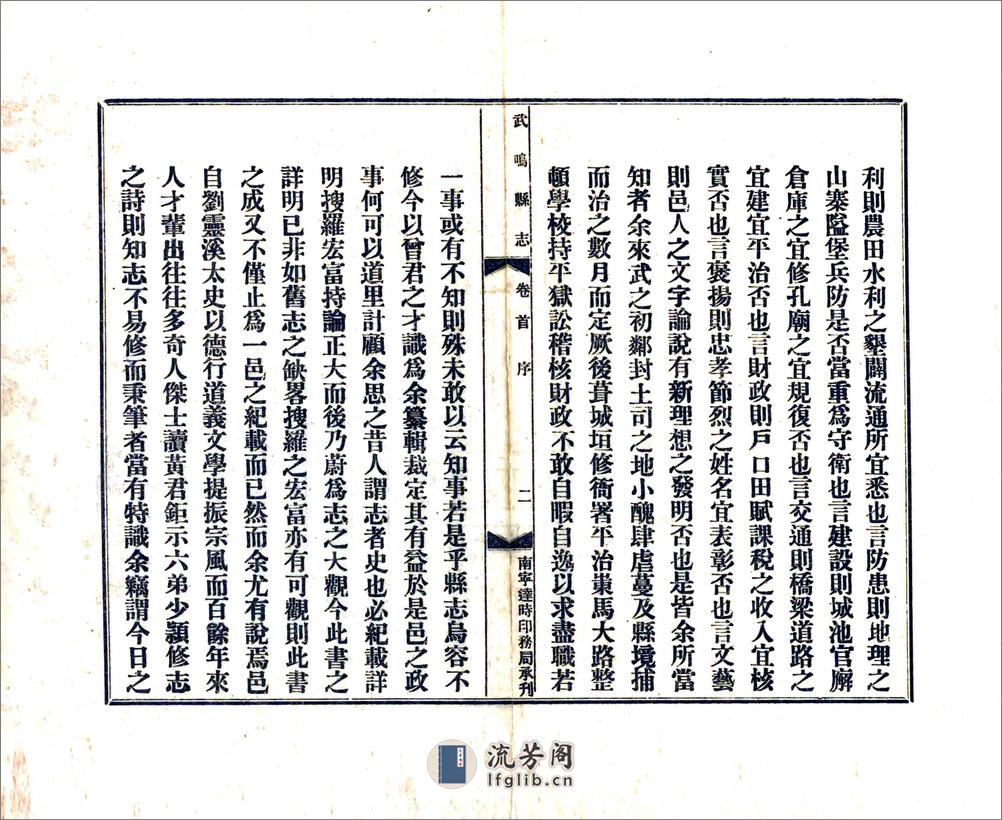 利則農田水利之墾闢流通所宜悉也言防患則地理之
山寨隘堡兵防是否當重爲守衛也言建設則城池官廨
倉庫之宜修孔廟之宜規復否也言交通則橋梁道路之
宜建宜平治否也言財政則戶口田賦課税之收入宜核
實否也言褒揚則忠孝節烈之姓名宜表彰否也言文藝
則邑人之文字論說有新理想之發明否也是皆余所當
知者余來武之初鄰封土司之地小醜肆虐蔓及縣境捕
而治之數月而定厥後葺城垣修衙署平治軰馬大路整
頓學校持平獄訟稽核財政不敢自暇自逸以求盡職若
武鳴縣志
卷首
序
二
南寧達時印務局承刋
一事或有不知則殊未敢以云知事若是乎縣志烏容不
修今以曾君之才識爲余纂輯裁定其有益於是邑之政
事何可以道里計顧余思之昔人謂志者史也必紀載詳
明搜羅宏富持論正大而後乃蔚爲志之大觀今此書之
詳明已非如舊志之缺畧搜羅之宏富亦有可觀則此書
之成又不僅止爲一邑之紀載而已然而余尤有說焉邑
自劉靈溪太史以德行道義文學提振宗風而百餘年來
人才輩出往往多奇人傑士讀黃君鉅示六弟少潁修志
之詩則知志不易修而秉筆者當有特識余竊謂今日之
流芳阁
lfglib.cn